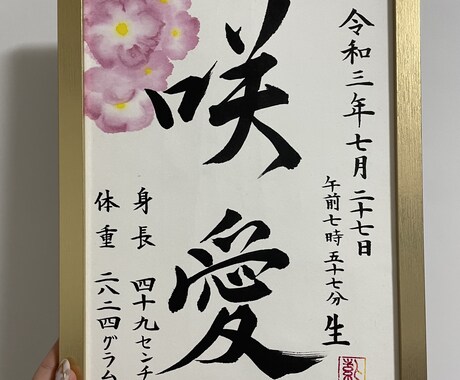 令和三年七月二十七日
午前七時五十七分 生
咲愛
身長 四十九センチ
体重 二八二四グラム